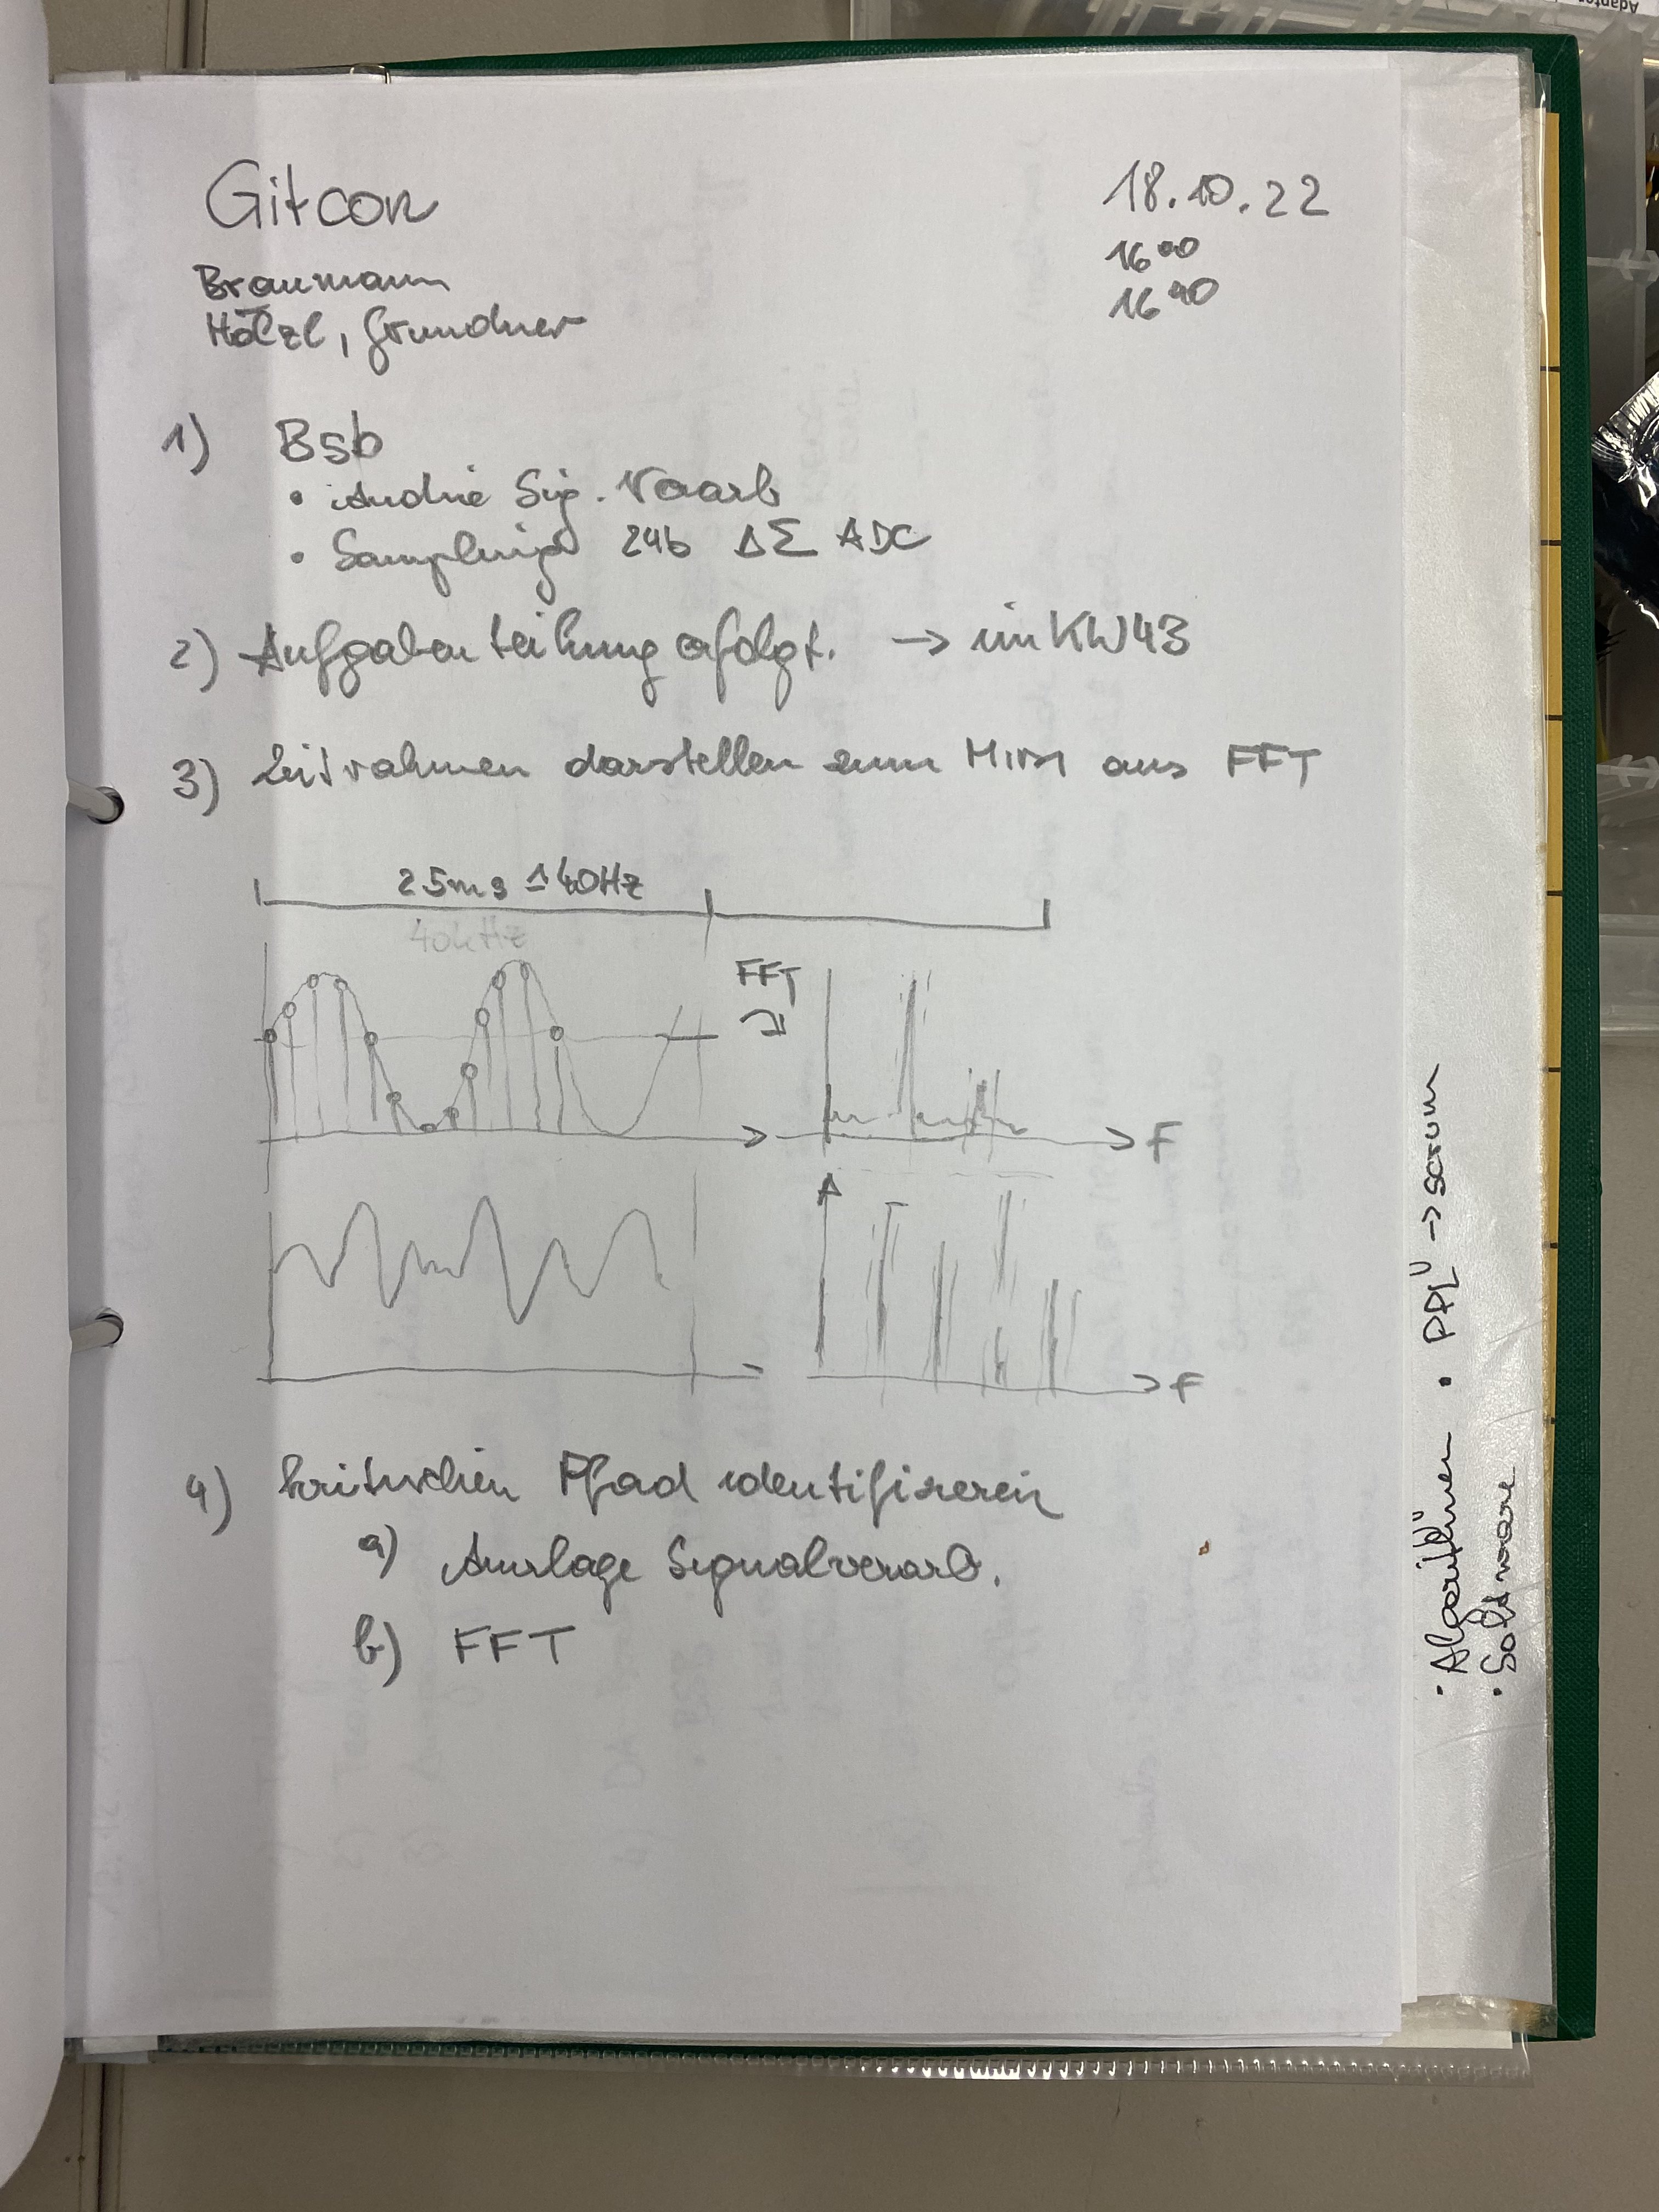 Gitcon
18.10.22
16 00
16 40
Braumann
Hölzl, Grundner
1) Bsb
• Audio Sig. Vorarb
• Sampling 24b ΔΣ ADC
2) Aufgabenteilung erfolgt. → in KW43
3) Zeitrahmen darstellen zum aus FFT
25ms ≙ 40Hz
40kHz
FFT
F
F
4) kritischen Pfad identifizieren
a) Analoge Signalverarb.
b) FFT
• Algorithmen • PPL → scrum
• Software